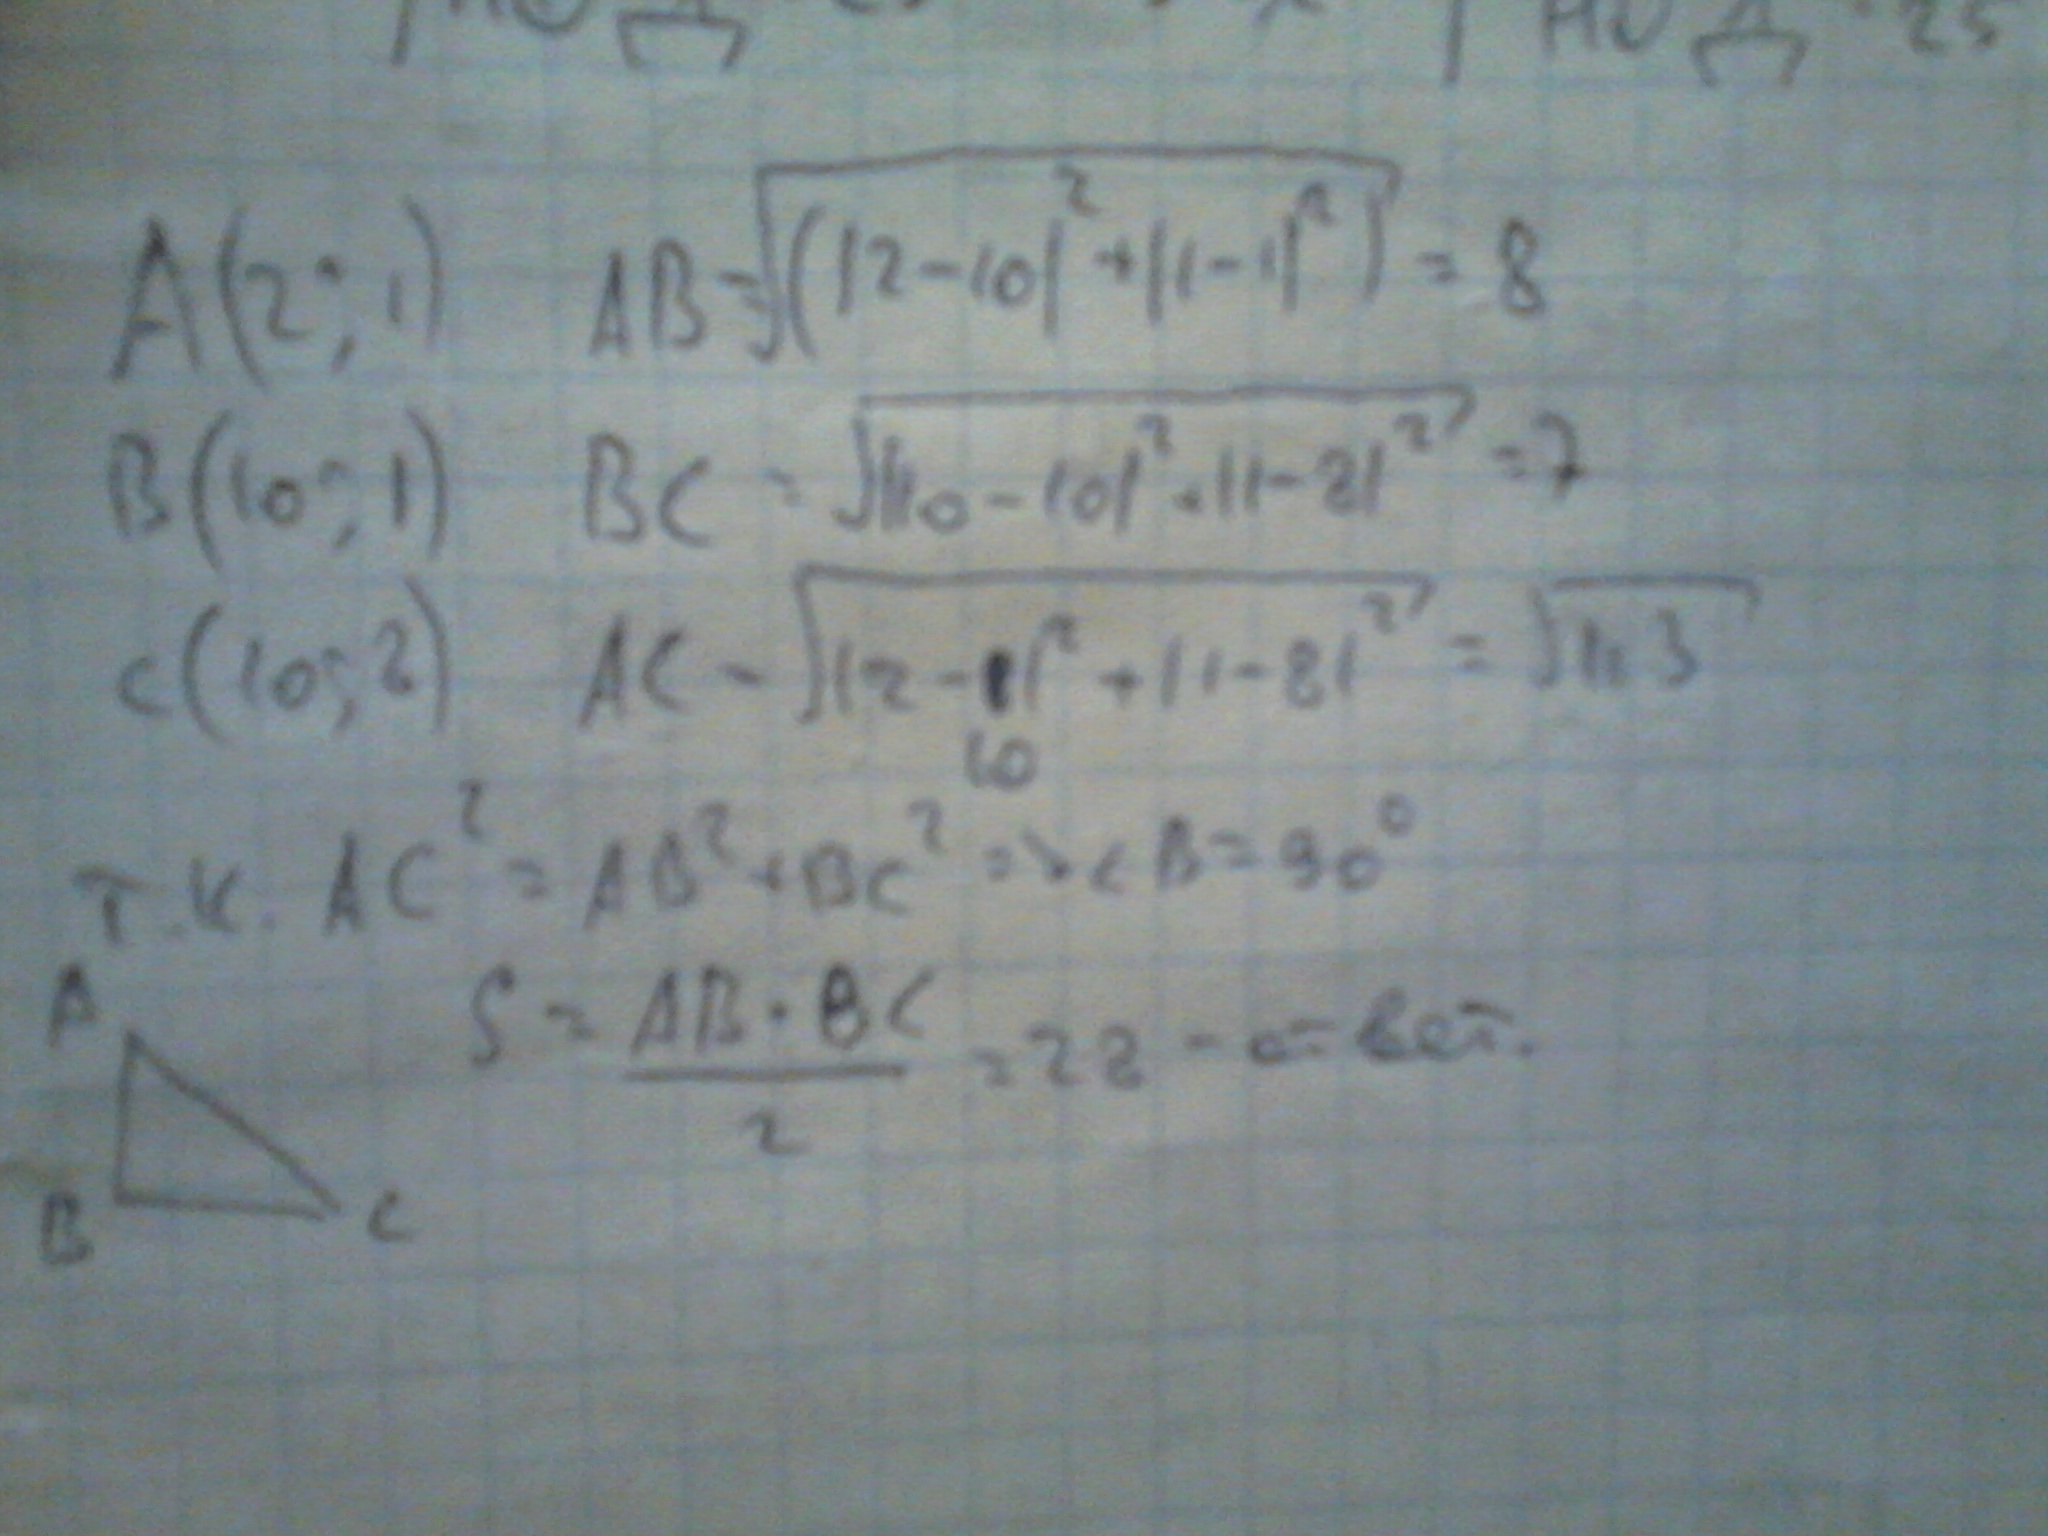 НОД НОД 25
A(2;1) AB=√(|2-10|²+|1-1|²)=8
B(10;1) BC=√|10-10|²+|1-8|²=7
C(10;8) AC-√|2-1|²+|1-8|²=√113
10
т.к. AC²=AB²+BC²=>∠B=90°
A
S=AB·BC/2=28-ответ.
B C